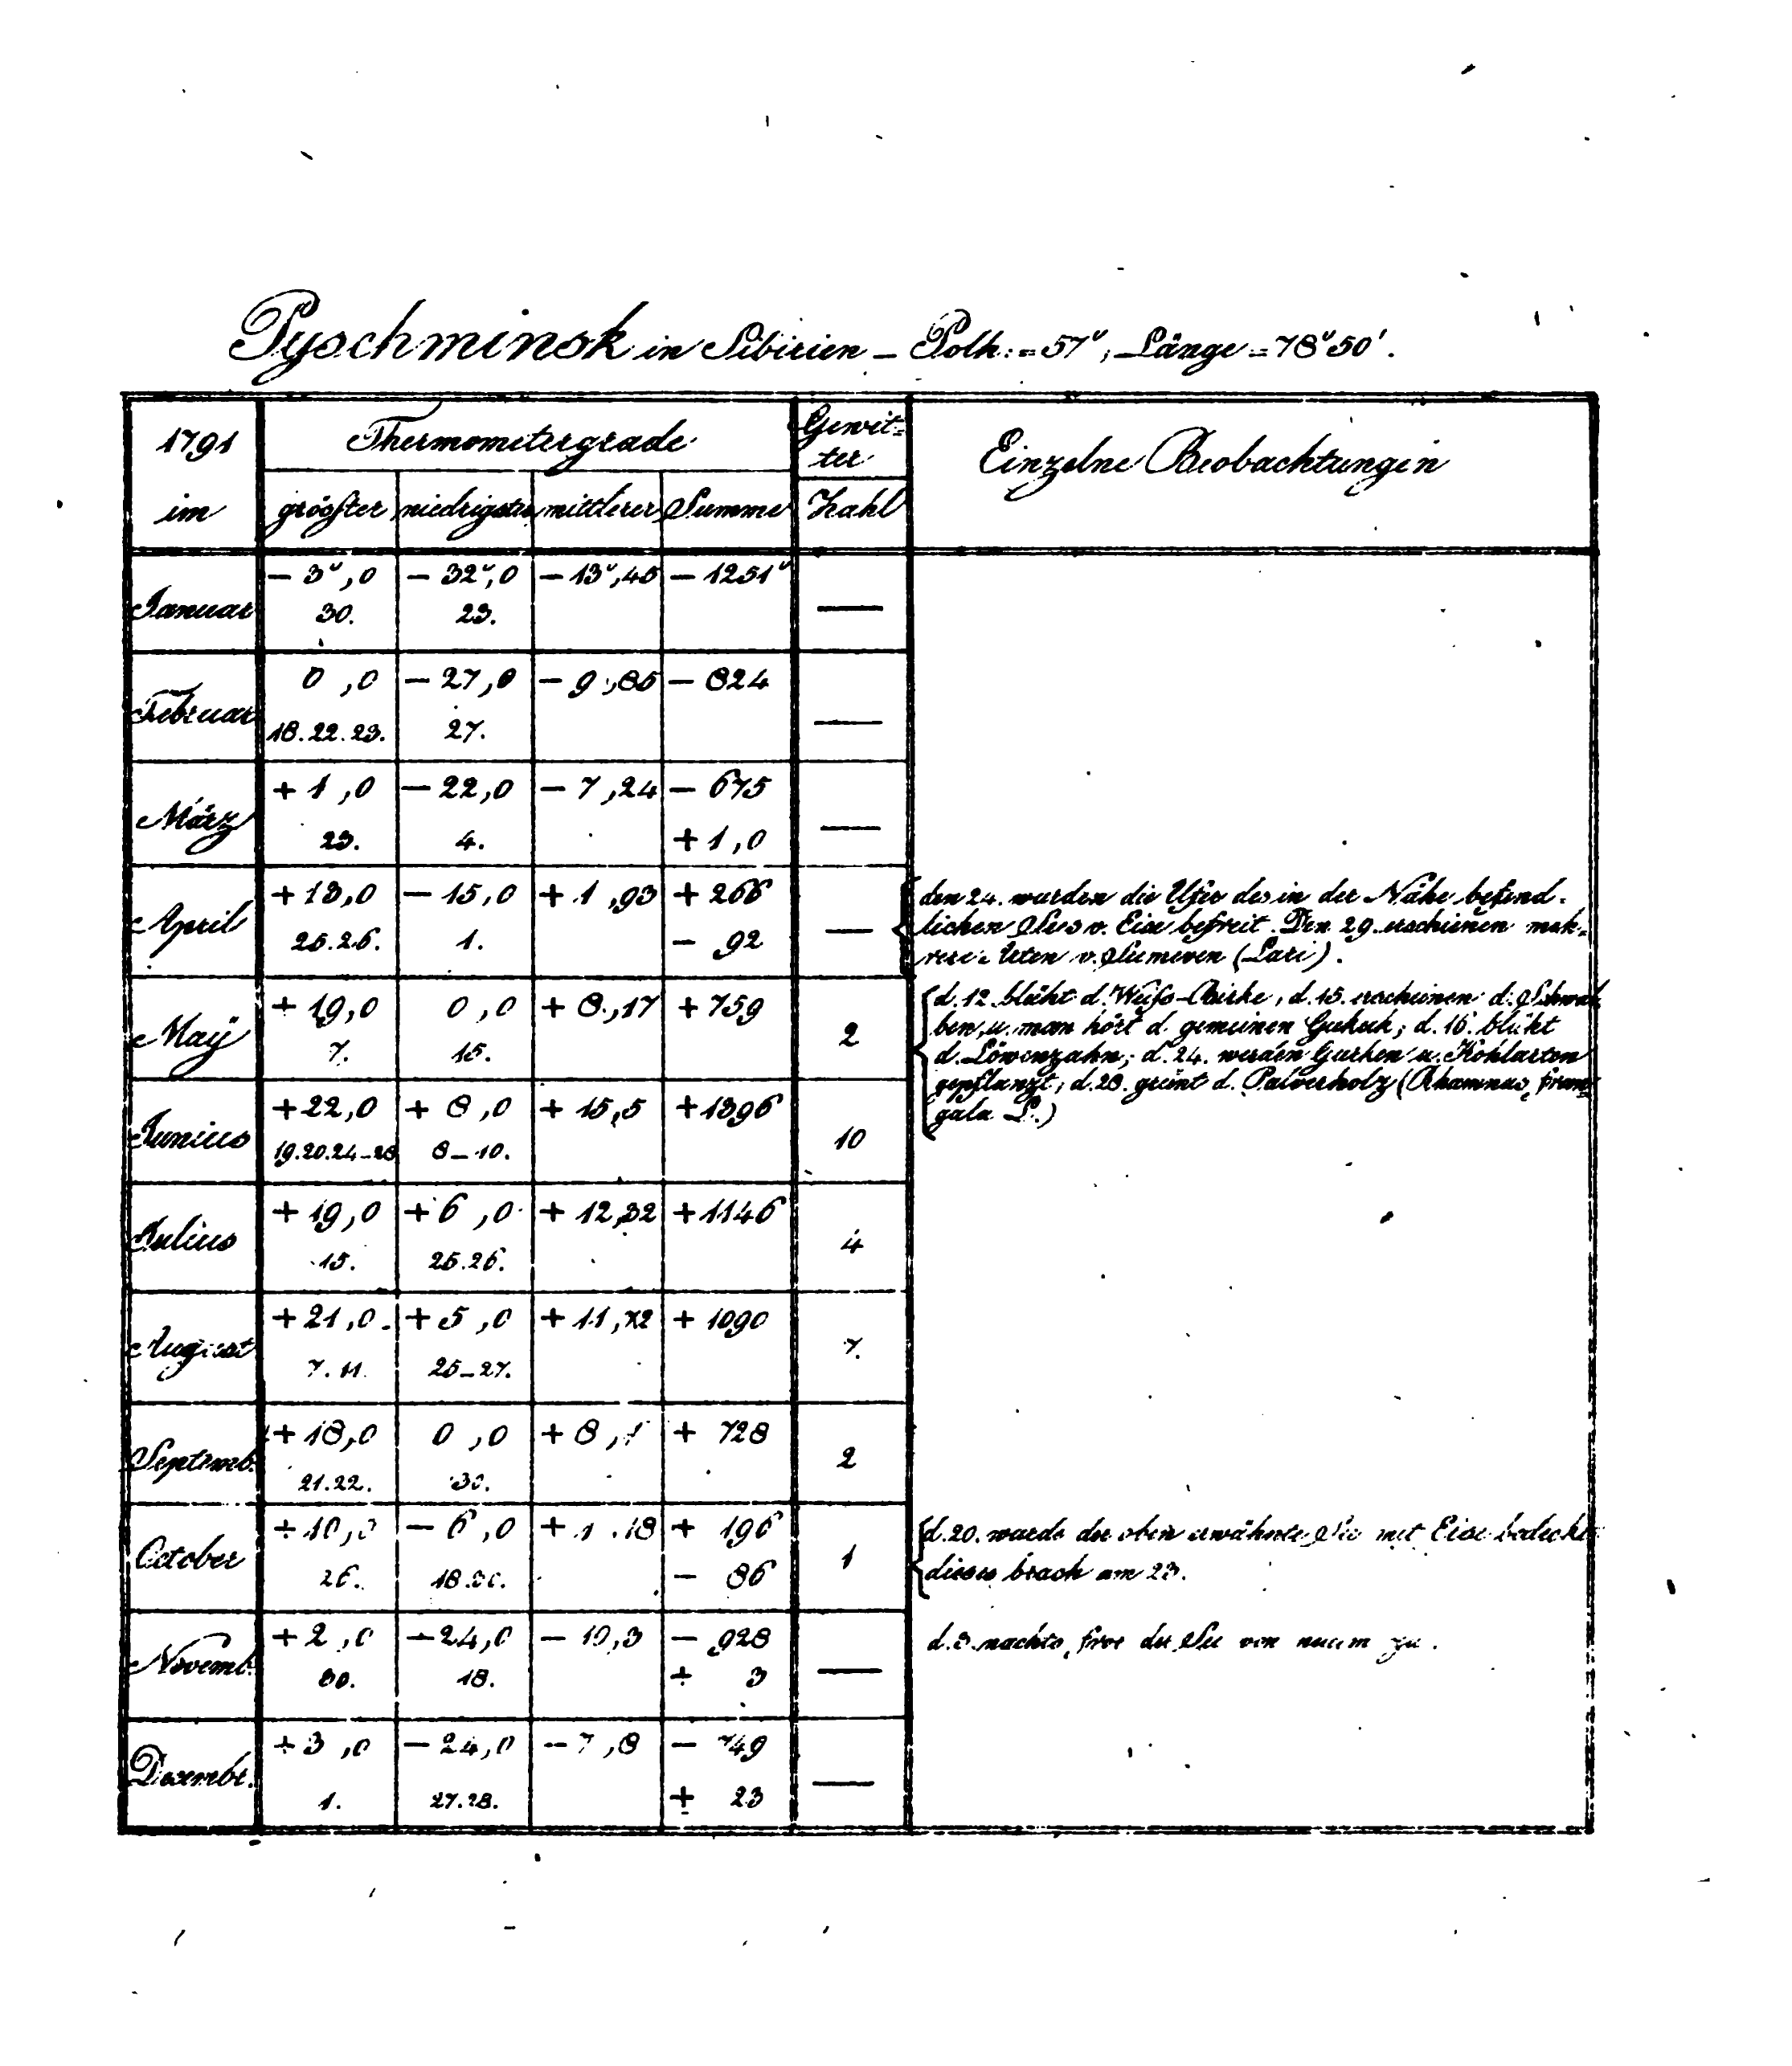 Pyschminsk in Sibirien – Polh: = 57°, Länge = 78°50'.
1791 Thermometergrade Gewit=
ter Einzelne Beobachtungen
im grösster niedrigster mittlerer Summe Zahl
Januar – 3°,0 – 32°,0 – 13°,45 – 1251° —
30. 23.
Februar 0,0 – 27,0 – 9,85 – 824 —
18.22.23. 27.
März + 1,0 – 22,0 – 7,24 – 675 —
23. 4. + 1,0
April + 13,0 – 15,0 + 1,93 + 266 —
25.26. 1. – 92
den 24. wurden die Ufer des in der Nähe befind-
lichen Sees v. Eise befreit. Den 29. erschienen meh-
rere Arten v. Seemeven (Lari).
May + 19,0 0,0 + 8,17 + 759 2
7. 15.
d. 12. blüht d. Weiss-Birke, d. 15. erscheinen d. Schwal
ben, u. man hört d. gemeinen Gukuk; d. 16. blüht
d. Löwenzahn; d. 24. werden Gurken u. Kohlarten
gepflanzt; d. 28. grünt d. Pulverholz (Rhamnus fran=
gula L.)
Junius + 22,0 + 8,0 + 15,5 + 1396 10
19.20.24–28 8–10.
Julius + 19,0 + 6,0 + 12,32 + 1146 4
15. 25.26.
August + 21,0 + 5,0 + 11,72 + 1090 7.
7.11. 25–27.
Septemb. + 18,0 0,0 + 8,1 + 728 2
21.22. 30.
October + 10,0 – 6,0 + 1,18 + 196 1
26. 18. – 86
d. 20. wurde der oben erwähnte See mit Eise bedeckt
dieses brach am 23.
Novemb. + 2,0 – 24,0 – 10,3 – 928 —
30. 18. + 3
d. 8. nachts fror der See von neuem zu.
Dezembr. + 3,0 – 24,0 – 7,8 – 749 —
1. 27.28. + 23